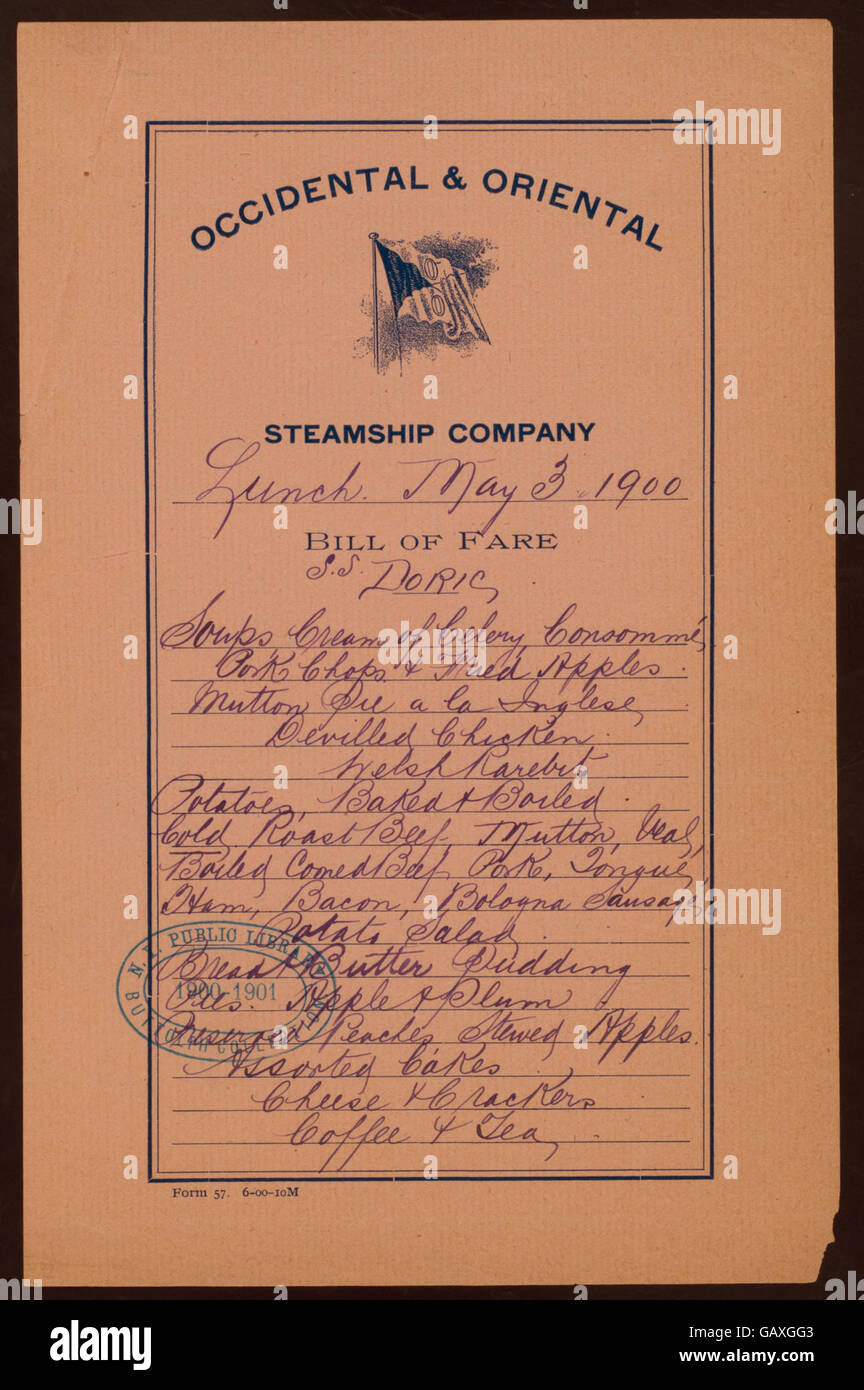 OCCIDENTAL & ORIENTAL
O
O
STEAMSHIP COMPANY
Lunch. May 3. 1900
BILL OF FARE
S.S. DORIC
Soups, Cream of Celery, Consommé
Pork Chops & Fried Apples.
Mutton Pie a la Inglese
Devilled Chicken.
Welsh Rarebit
Potatoes, Baked & Boiled.
Cold Roast Beef, Mutton, Veal,
Boiled Corned Beef, Pork, Tongue,
Ham, Bacon, Bologna Sausage,
Potato Salad.
Bread & Butter Pudding
Pies. Apple & Plum
Preserved Peaches Stewed Apples.
Assorted Cakes
Cheese & Crackers
Coffee & Tea
N.Y. PUBLIC LIBRARY
1900-1901
BUTTOLPH COLLECTION
Form 57. 6-00-10M
alamy
alamy stock photo
GAXGG3
www.alamy.com